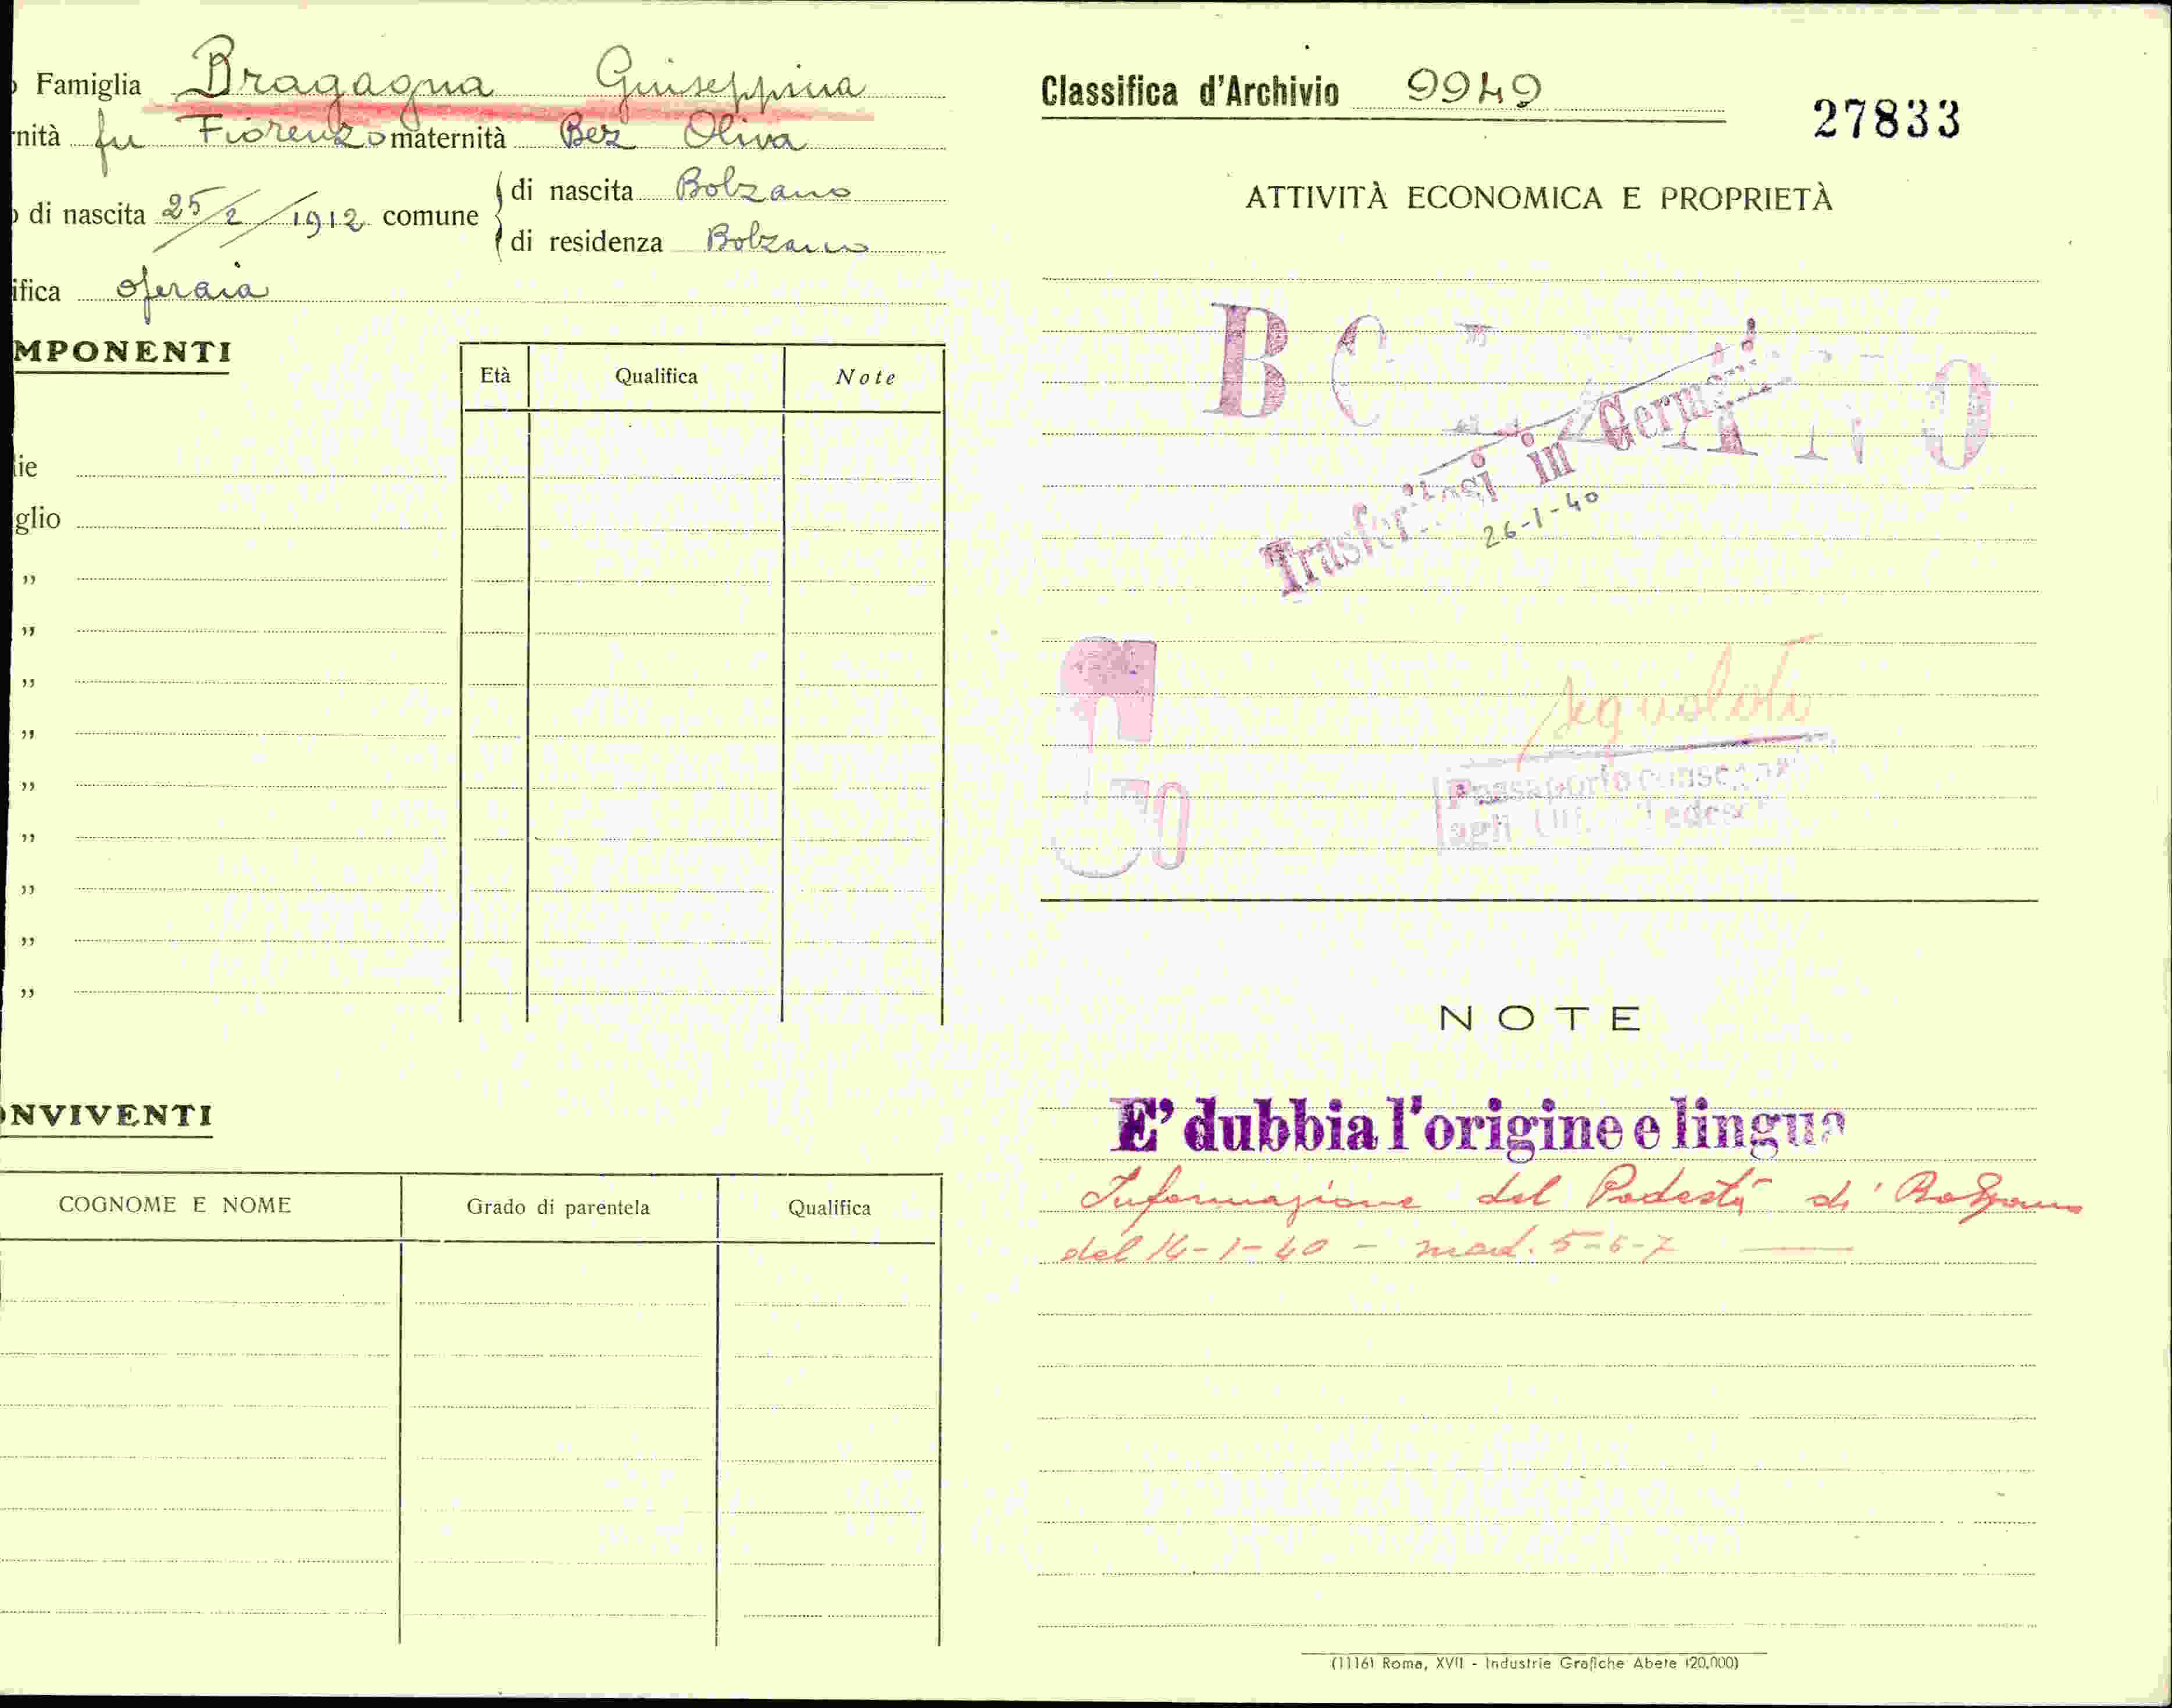 Famiglia Bragagna Giuseppina
nità fu Fiorenzo maternità Bez Oliva
di nascita 25/2/1912 comune di nascita Bolzano
di residenza Bolzano
ifica operaia
MPONENTI
Età Qualifica Note
ie
glio
„
„
„
„
„
„
„
„
„
NVIVENTI
COGNOME E NOME Grado di parentela Qualifica
Classifica d'Archivio 9949
27833
ATTIVITÀ ECONOMICA E PROPRIETÀ
Trasferitosi in Germani
26-1-40
segnalato
Passaporto
agli
NOTE
E' dubbia l'origine e lingua
Informazione del Podestà di Bolzano
del 14-1-40 - mod. 5-6-7
(1116) Roma, XVII - Industrie Grafiche Abete (20.000)